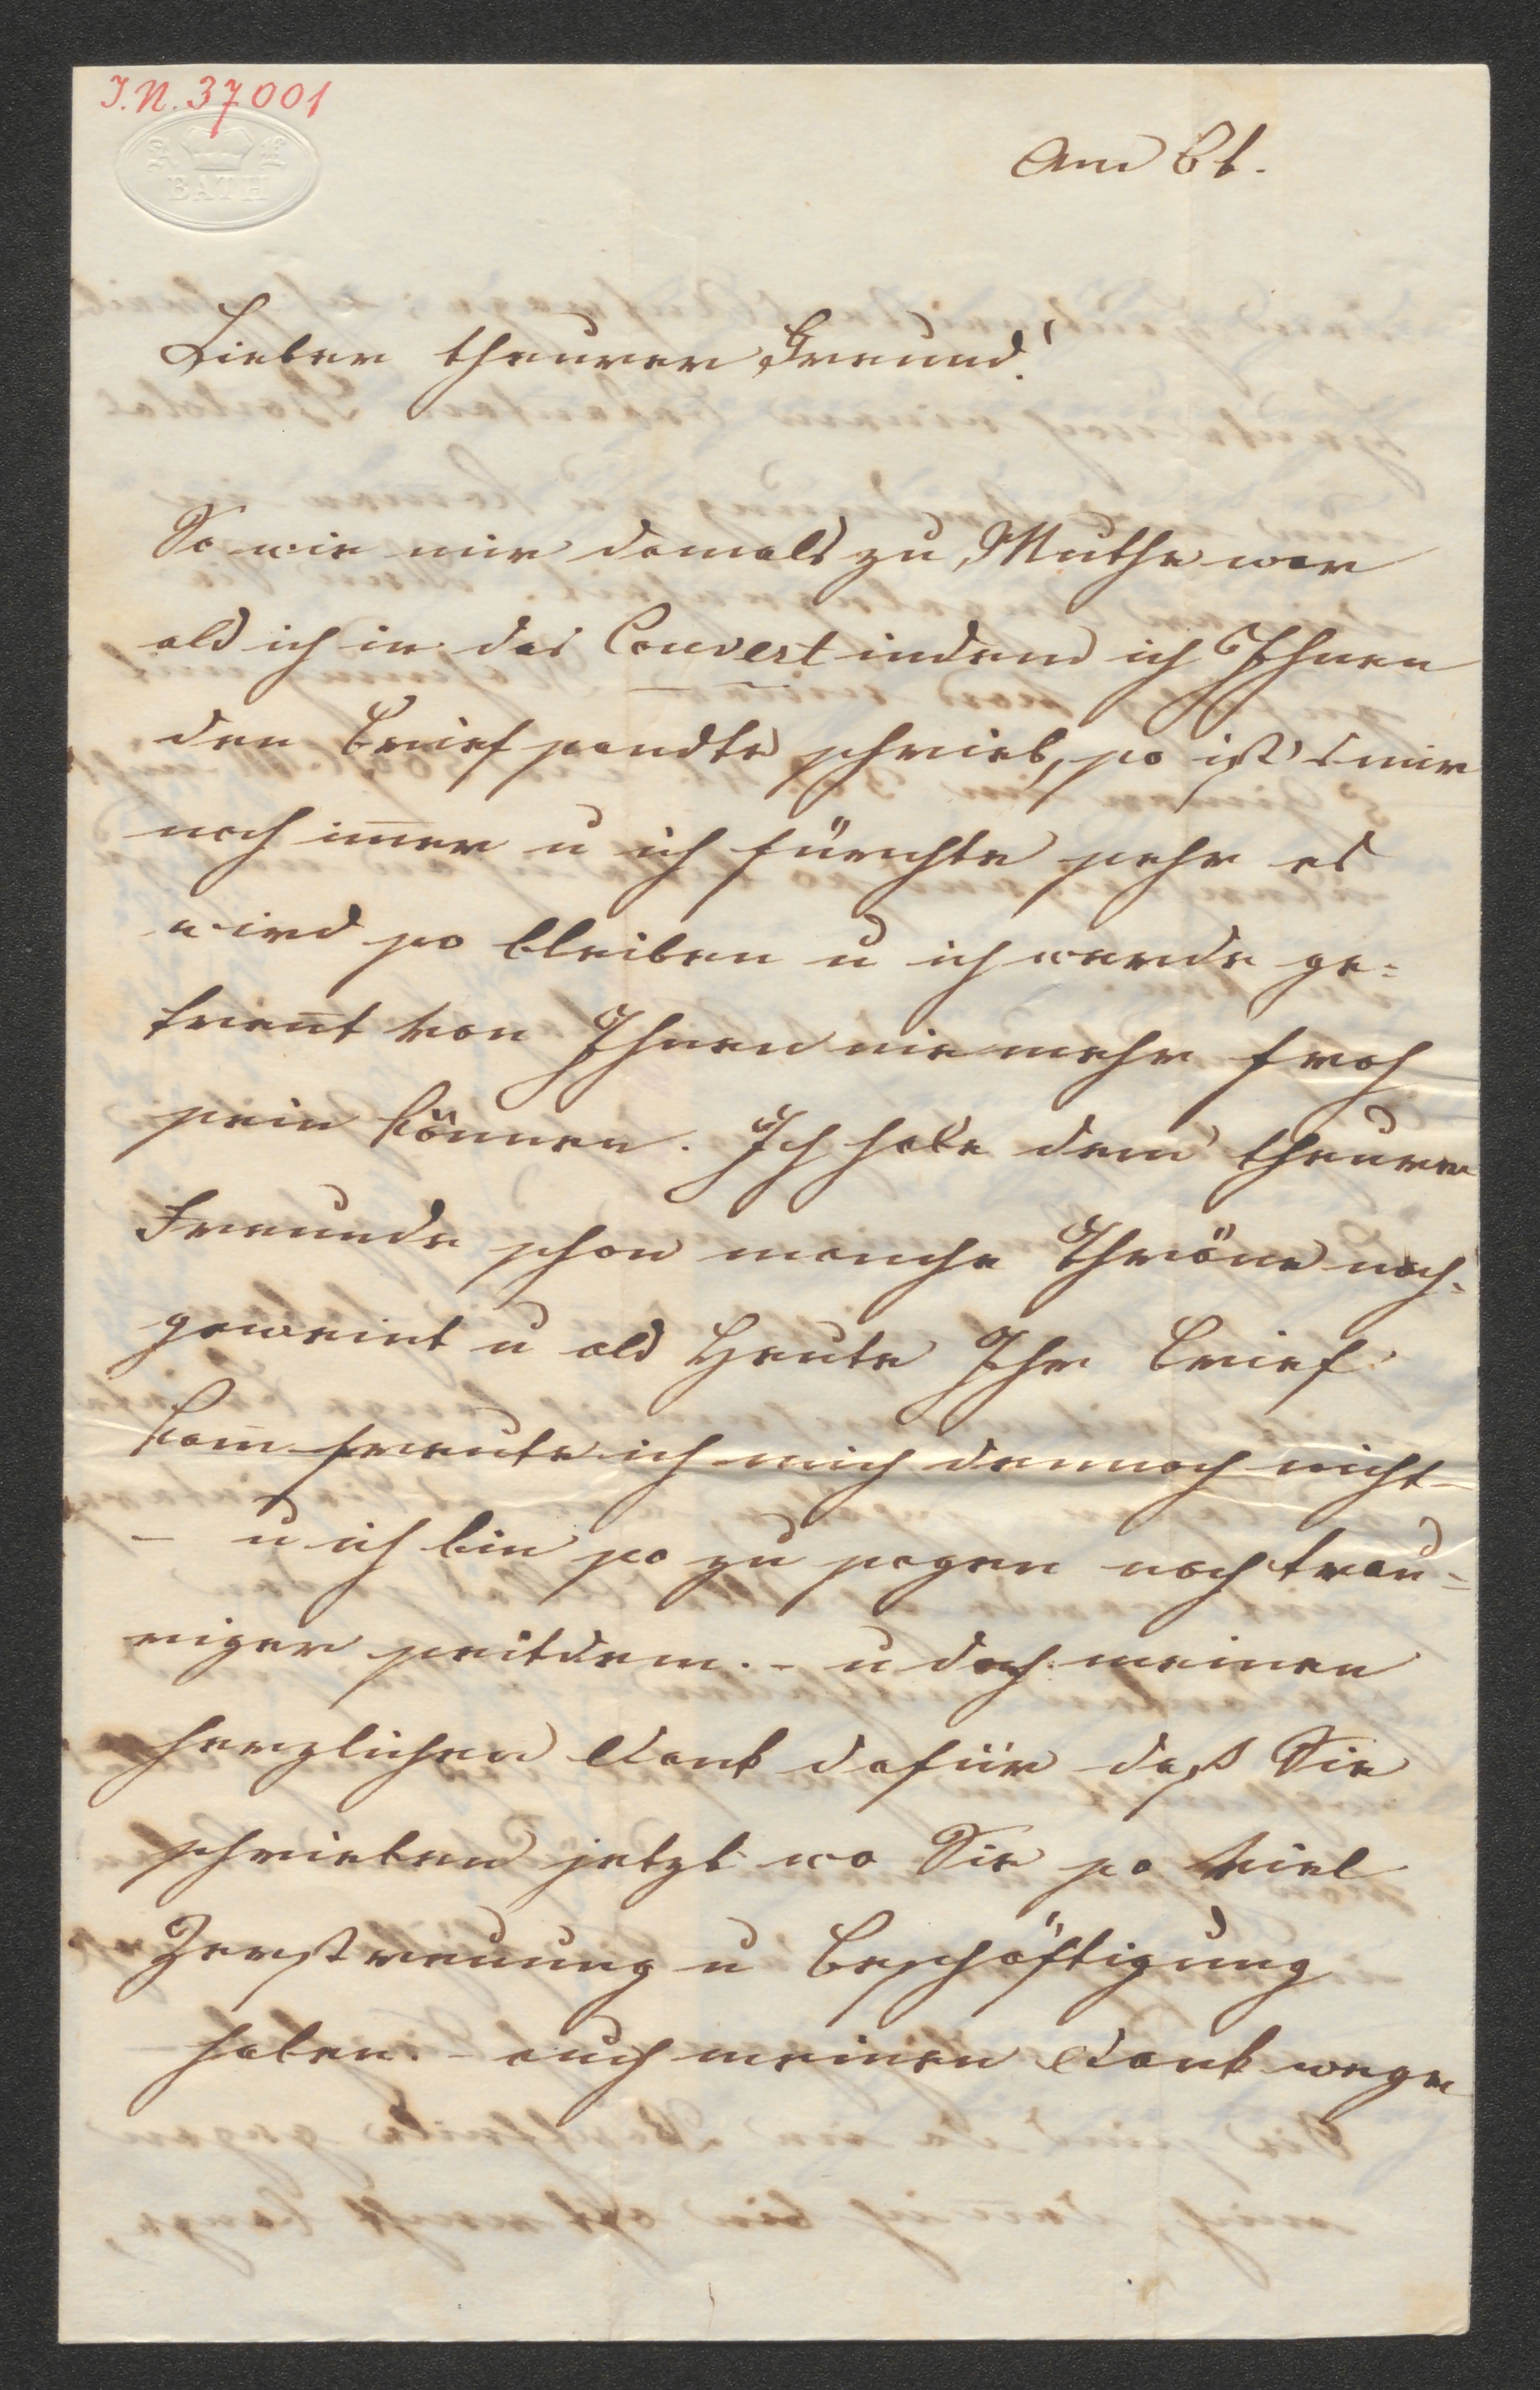 J.N. 37001
BATH
Am 6t.
Lieber theurer Freund!
So wie mir damals zu Muthe war
als ich in das Couvert indem ich Ihnen
den Brief sandte schrieb, so ist's mir
noch im̅er u ich fürchte sehr es
wird so bleiben u ich werde ge=
tren̅t von Ihnen nie mehr froh
sein können. Ich habe dem theuren
Freunde schon manche Thräne nach=
geweint u als Heute Ihr Brief
kam freute ich mich dennoch nicht –
– u ich bin so zu sagen noch trau=
riger seitdem. – u doch meinen
herzlichen Dank dafür daß Sie
schrieben jetzt wo Sie so viel
Zerstreuung u Beschäftigung
haben. – auch meinen Dank wegen